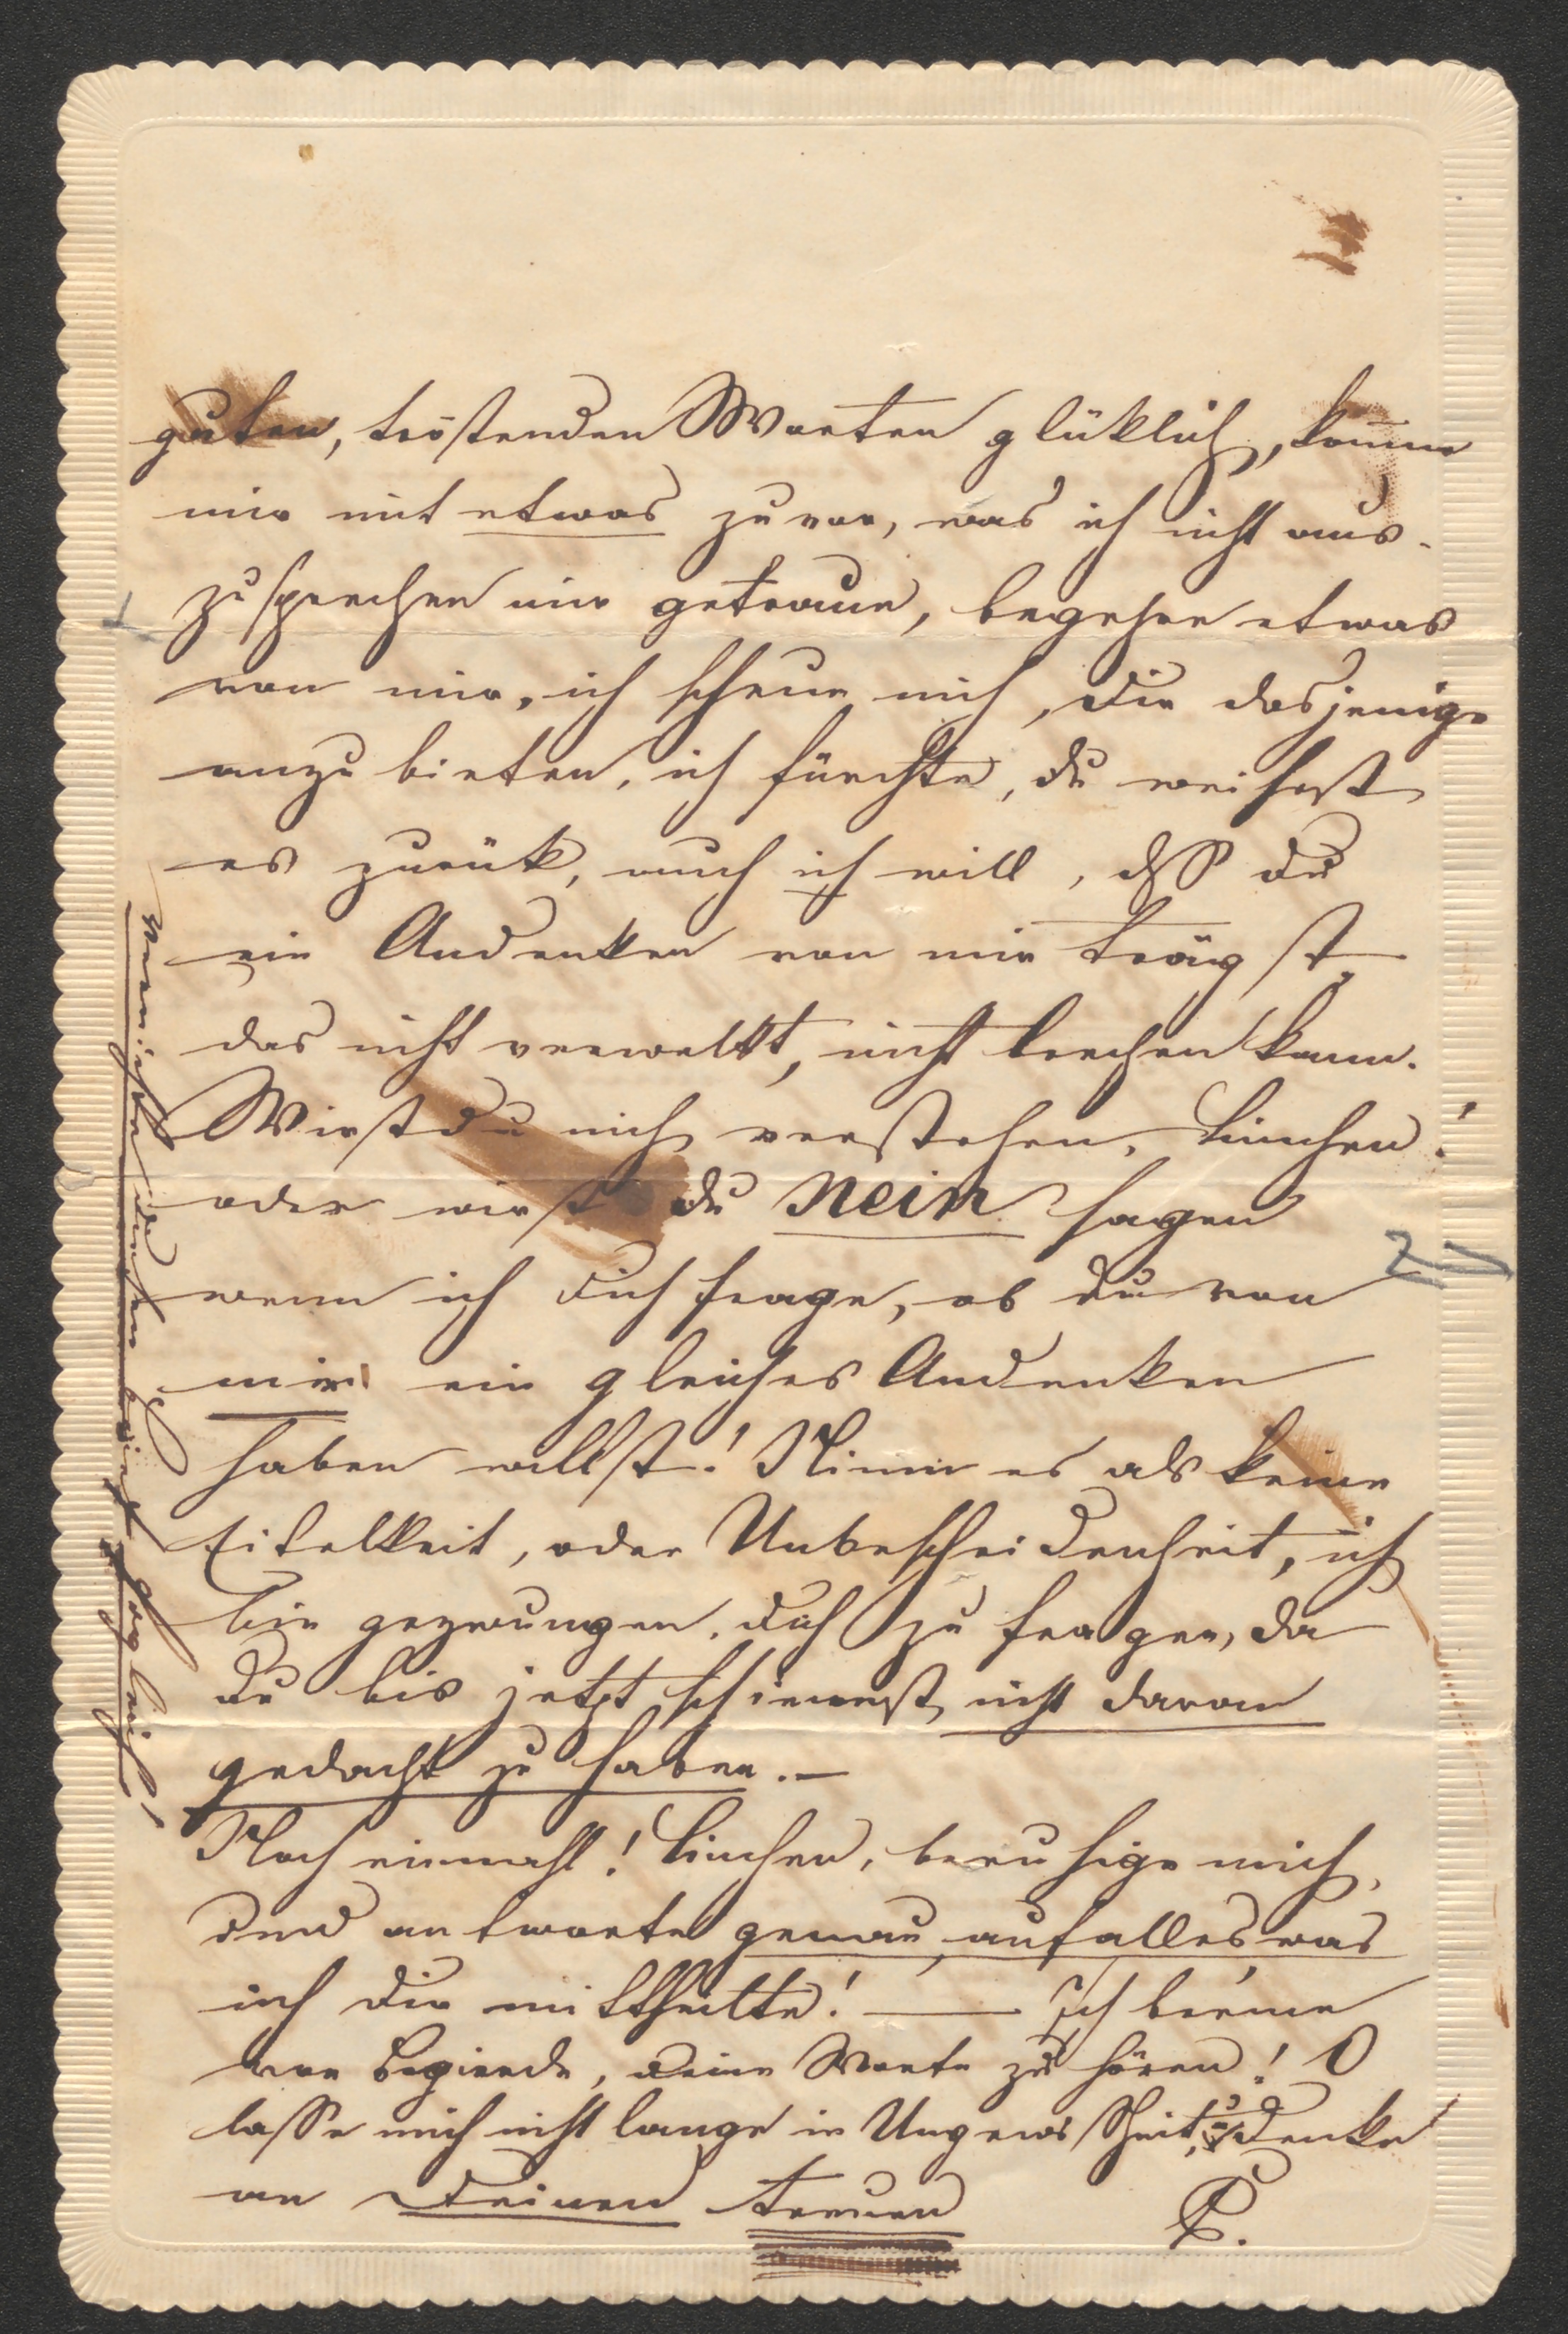 guten, tröstenden Worten glüklich, komme
mir mit etwas zuvor, was ich nicht aus-
zusprechen mir getraue, begehre etwas
von mir, ich scheue mich, dir dasjenige
anzubieten, ich fürchte, du weisest
es zurük, auch ich will, dß du
ein Andenken von mir trägst
das nicht verwelkt, nicht brechen kann.
Wirst du mich verstehen, Linchen!
oder wirst du nein sagen
wenn ich dich frage, ob du von
mir ein gleiches Andenken
haben willst! Nimm es als keine
Eitelkeit, oder Unbescheidenheit, ich
bin gezwungen, dich zu fragen, da
du bis jetzt schienest nicht daran
gedacht zu haben.—
Noch einmahl! Linchen, beruhige mich,
und antworte genau, auf alles, was
ich dir mittheilte! — Ich brenne
vor Begierde, deine Worte zu hören! O
lasse mich nicht lange in Ungewisheit, denke
an Deinen treuen
vernichte diesen Brief sogleich!